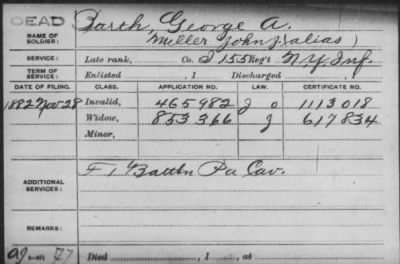 DEAD
Barth, George A.
NAME OF SOLDIER: Miller John J (alias)
SERVICE: Late rank, Co. I 155 Reg't N.Y. Inf.
TERM OF SERVICE: Enlisted , 1 Discharged , 1
DATE OF FILING. CLASS. APPLICATION NO. LAW. CERTIFICATE NO.
1882 Nov. 28 Invalid, 465982 g o 1113018
Widow, 853366 g 617834
Minor,
F 1" Battln Pa Cav.
ADDITIONAL SERVICES:
REMARKS:
Died , 1 , at